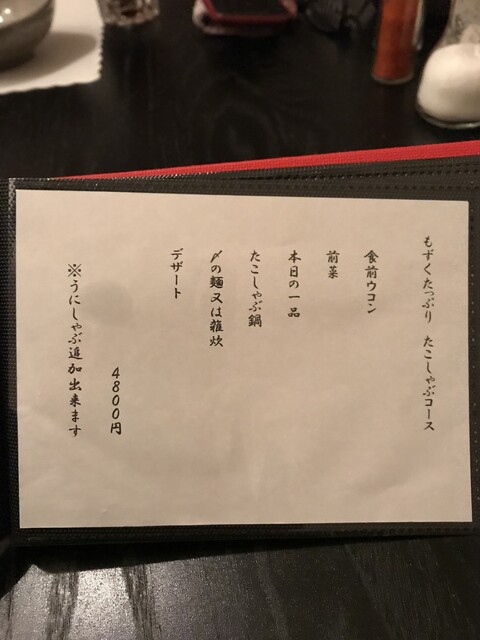 もずくたっぷり たこしゃぶコース
食前ウコン
前菜
本日の一品
たこしゃぶ鍋
〆の麺又は雑炊
デザート
4800円
※うにしゃぶ追加出来ます